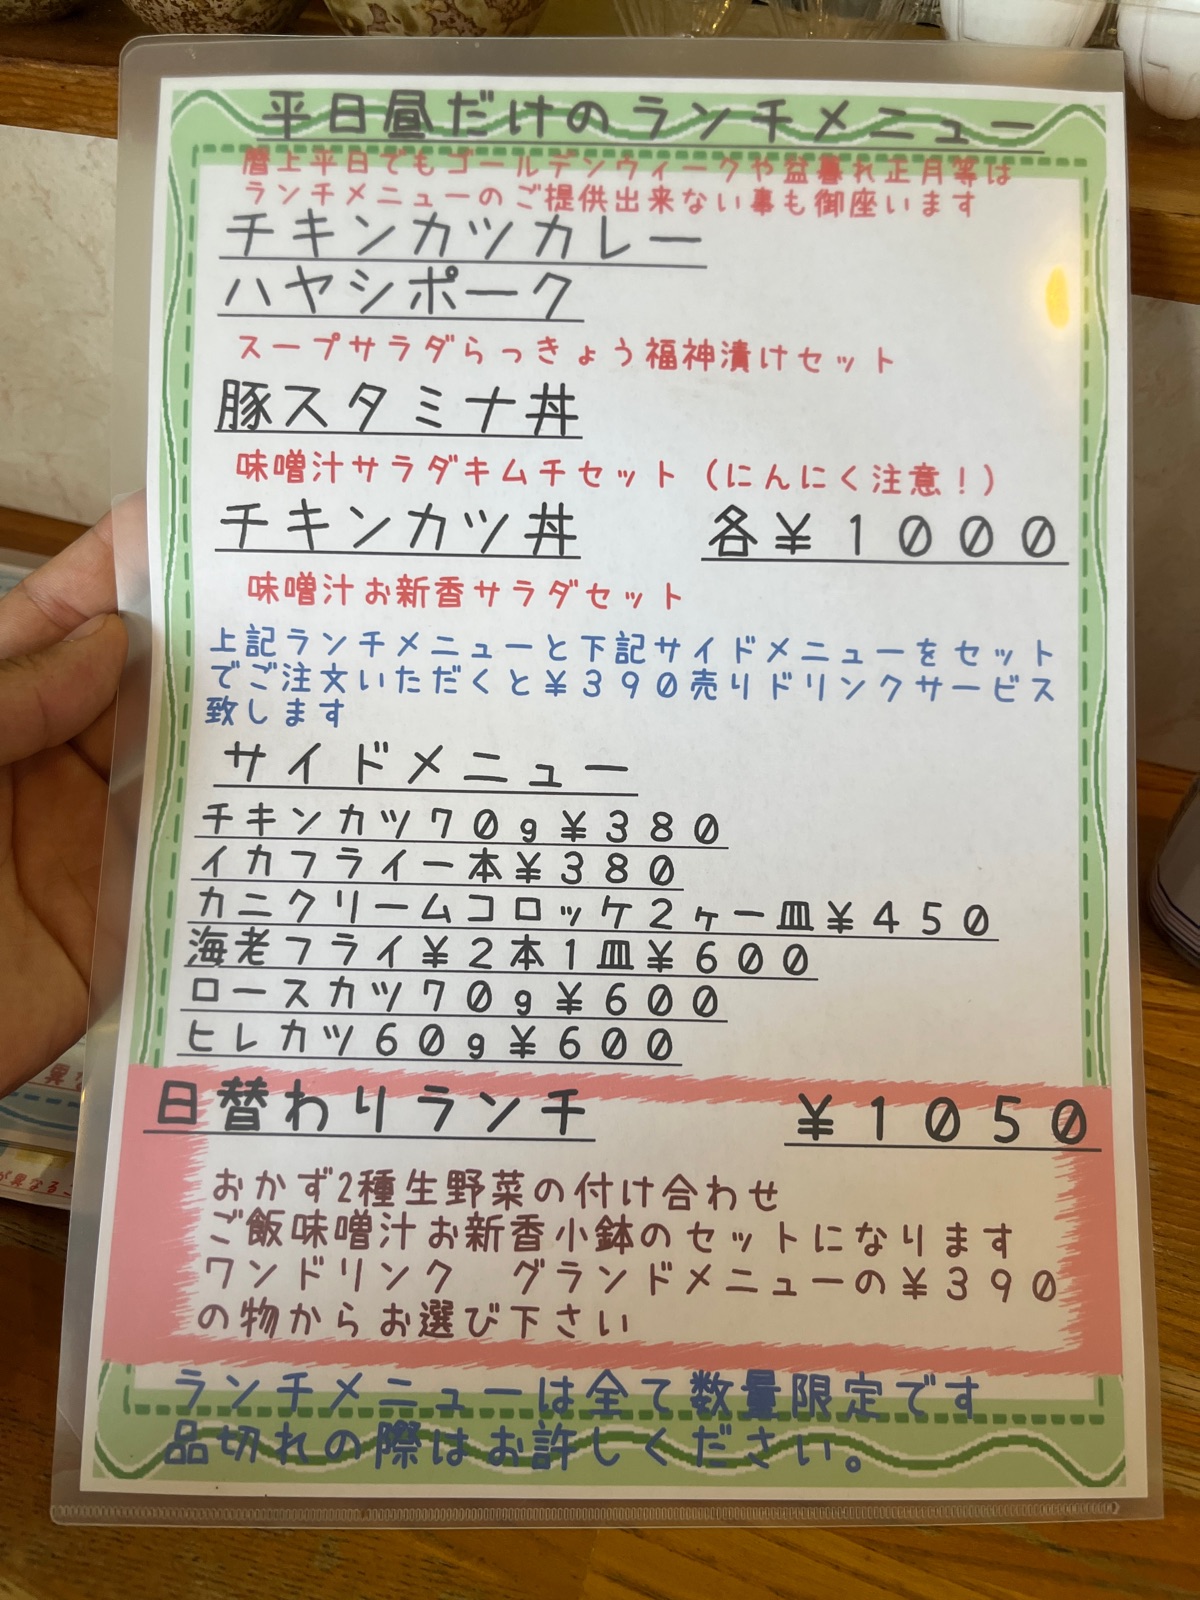 平日昼だけのランチメニュー
暦上平日でもゴールデンウィークや盆暮れ正月等は
ランチメニューのご提供出来ない事も御座います
チキンカツカレー
ハヤシポーク
スープサラダらっきょう福神漬けセット
豚スタミナ丼
味噌汁サラダキムチセット（にんにく注意！）
チキンカツ丼 各¥1000
味噌汁お新香サラダセット
上記ランチメニューと下記サイドメニューをセット
でご注文いただくと¥390売りドリンクサービス
致します
サイドメニュー
チキンカツ70g¥380
イカフライ一本¥380
カニクリームコロッケ2ヶ一皿¥450
海老フライ¥2本1皿¥600
ロースカツ70g¥600
ヒレカツ60g¥600
日替わりランチ ¥1050
おかず2種生野菜の付け合わせ
ご飯味噌汁お新香小鉢のセットになります
ワンドリンク グランドメニューの¥390
の物からお選び下さい
ランチメニューは全て数量限定です
品切れの際はお許しください。